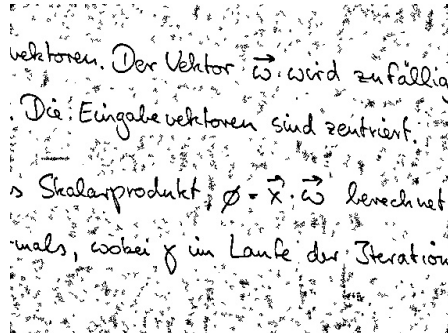 vektoren. Der Vektor \vec{ω} wird zufällig
. Die Eingabevektoren sind zentriert.
s Skalarprodukt, φ = \vec{x} · \vec{ω} berechnet
mals, wobei γ im Laufe der Iteration